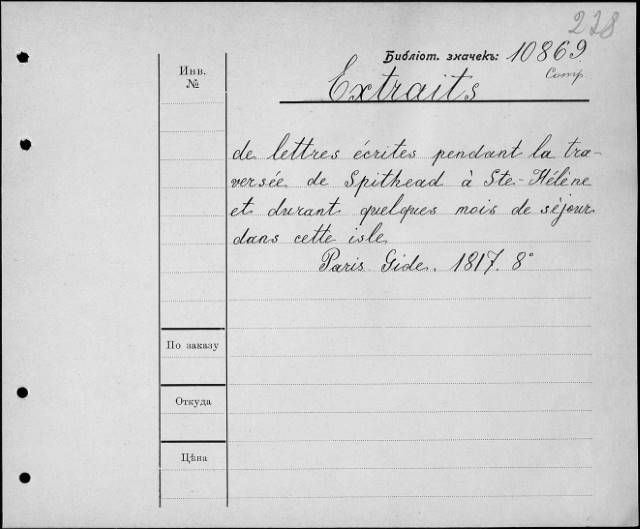 238
Библіот. значекъ: 10869
Comp.
Инв.
№
Extraits
de lettres écrites pendant la tra-
versée de Spithead à Ste-Hélène
et durant quelques mois de séjour
dans cette isle
Paris. Gide. 1817. 8°
По заказу
Откуда
Цѣна